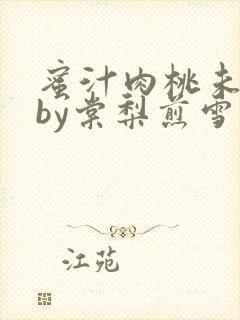 蜜汁肉桃未
by棠梨煎雪
江苑